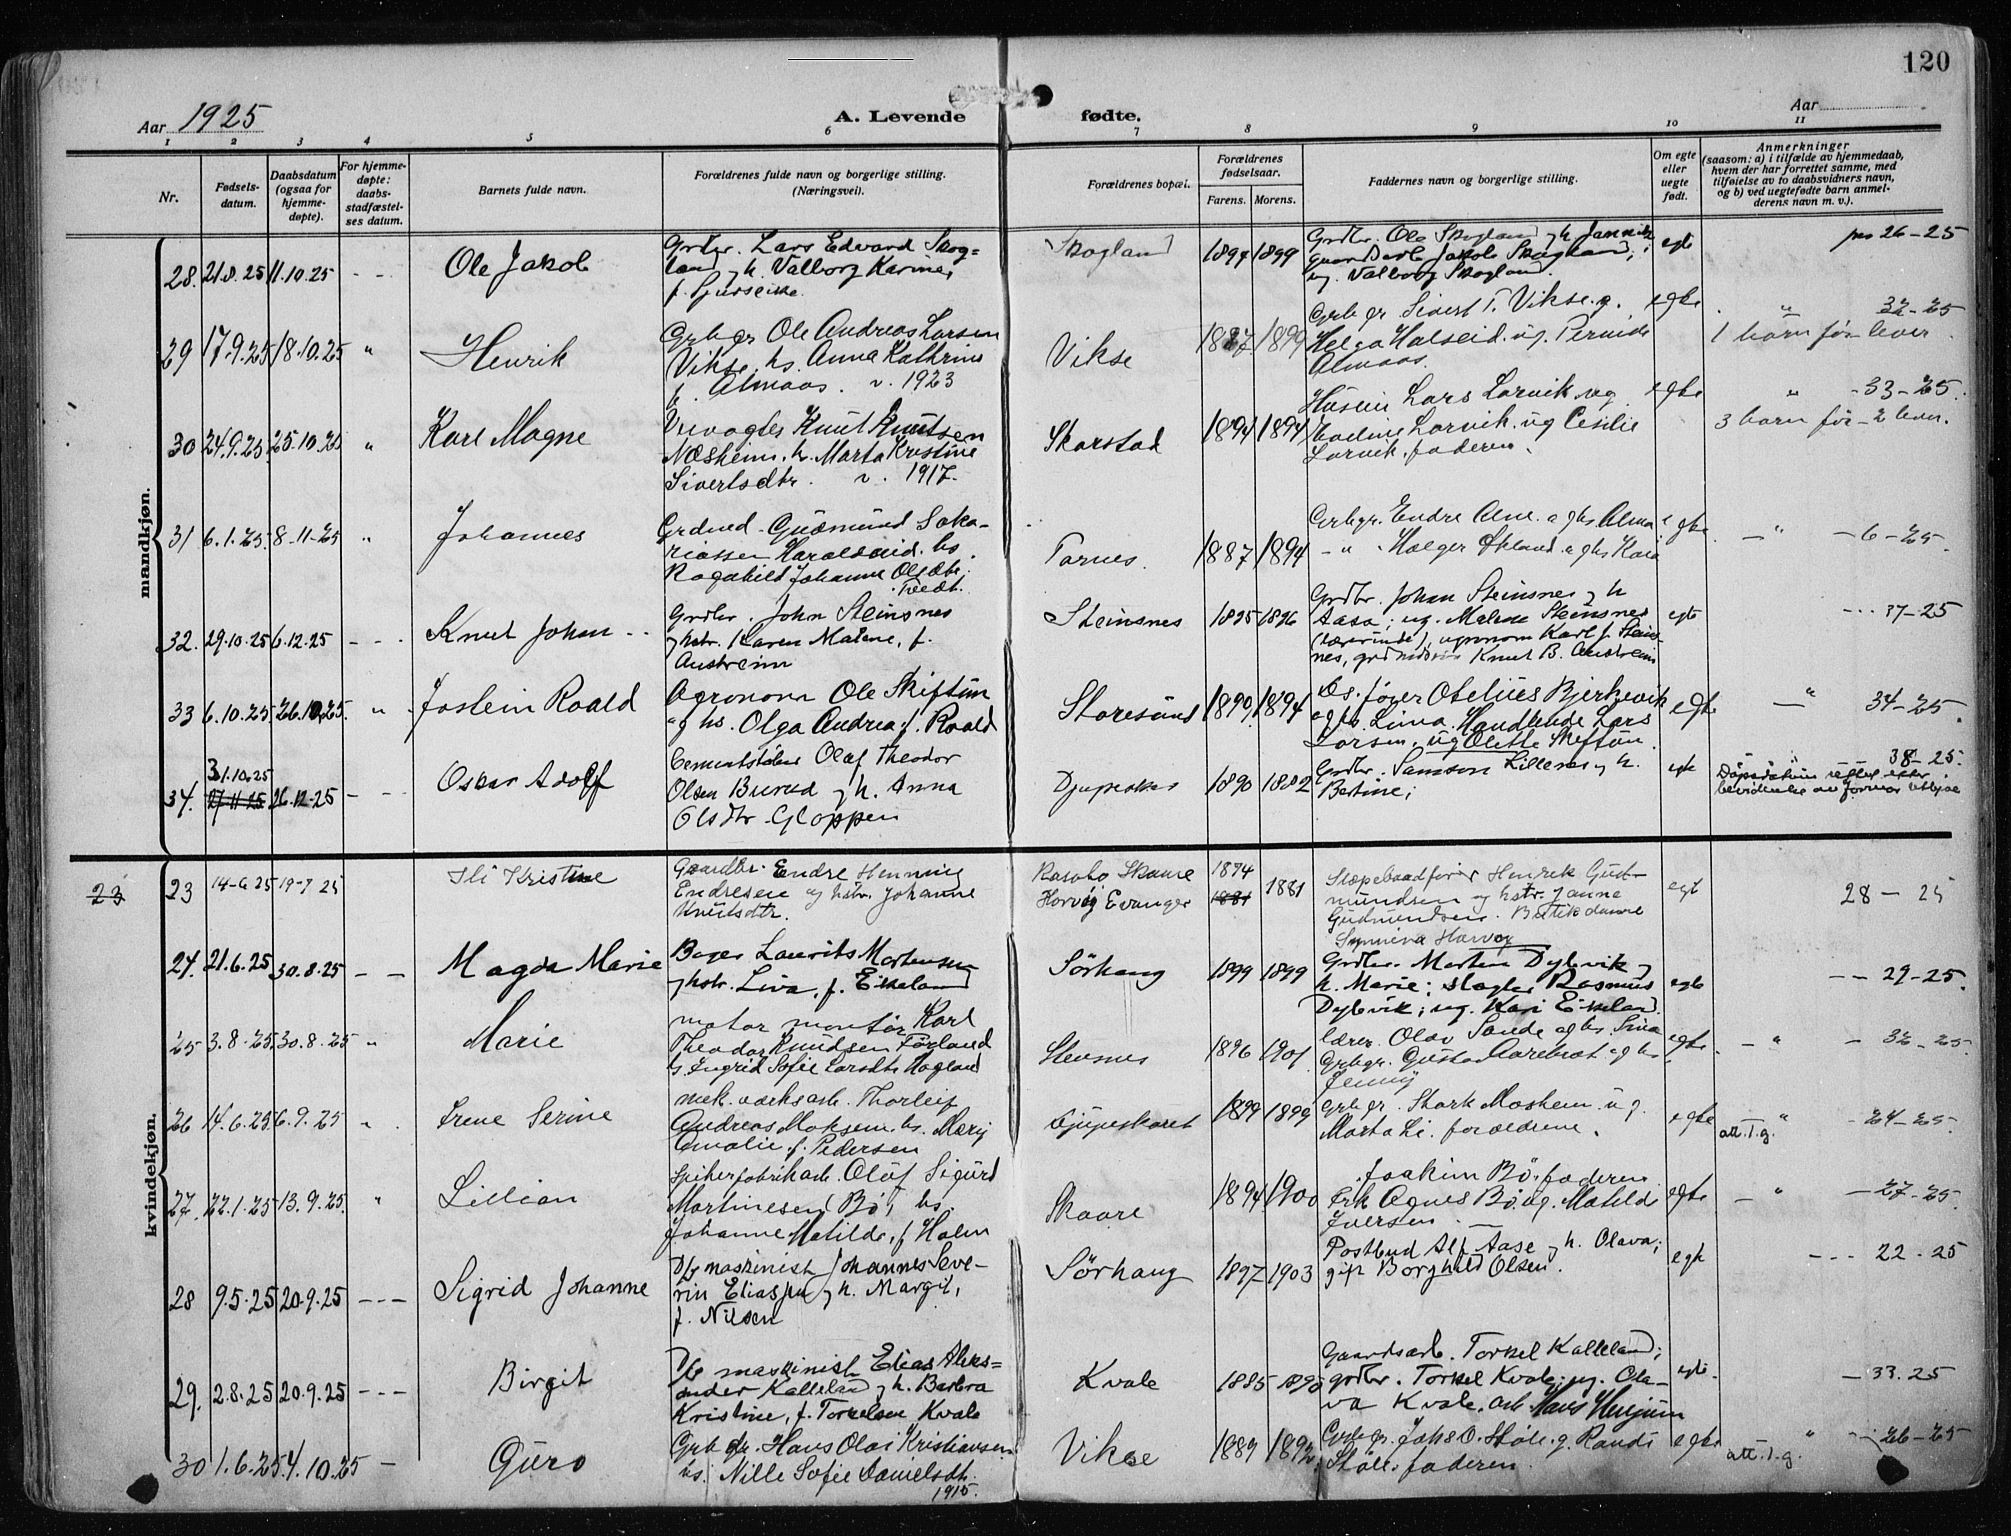 120
Aar 1925
A. Levende
fødte.
Aar
1 2 3 4 5 6 7 8 9 10 11
Nr.
Fødsels-
datum.
Daabsdatum
(ogsaa for
hjemme-
døpte).
For hjemme-
døpte:
daabs-
stadfæstel-
ses datum.
Barnets fulde navn.
Forældrenes fulde navn og borgerlige stilling.
(Næringsvei).
Forældrenes bopæl.
Forældrenes
fødselsaar.
Farens. Morens.
Faddernes navn og borgerlige stilling.
Om egte
eller
uegte
født.
Anmerkninger
(saasom: a) i tilfælde av hjemmedaab,
hvem der har forrettet samme, med
tilføielse av to daabsvidners navn,
og b) ved uegtefødte barn anmel-
derens navn m. v.).
mandkjøn.
28. 21.8.25 11.10.25 - -
Ole Jakob
Grdbr. Lars Edvard Skog-
land og h. Valborg Karine,
f.
Skogland
1894 1899
Grdbr. Ole Skogland og h.
gaardsarb. Jakob Skogland;
ug. Valborg Skogland.
egte
26-25
29 17.9.25 18.10.25 "
Henrik
Grbgr Ole Andreas Larsen
Vikse, hs. Anna Kathrine
f. Almaas. v. 1923
Vikse
1887 1899
Grbgr Sivert T. Vikse. g.
Helga Halseid. ug. Pernide
Almaas.
egte
" 32-25
1 barn før - lever.
30 24.9.25 25.10.25 "
Karl Magne
Knut Knutsen
Næsheim. h. Marta Kristine
Sivertsdtr. v. 1917.
Skarstad
1894 1894
Lars Larvik. ug
Larvik. ug Cecilie
Larvik. faderen.
egte
" - 33-25.
3 barn før - 2 lever.
31 6.1.25. 8-11-25 "
Johannes
Grdmed. Gudmund Saka-
riassen Haraldseid. hs.
Ragnhild Johanne Olsdtr.
Tvedt.
Tornes.
1887 1894
Grbgr. Endre Alne. og hs Alma
- " - Holger Økland og hs Kaia
egte
- " - 6-25.
32. 29.10.25 6.12.25 - - -
Knut Johan - -
Grdbr. John Steinsnes
og hstr. Karen Malene, f.
Austreim
Steinsnes
1895 1896
Grdbr. Johan Steinsnes og h
Aasa; ug. Malene Steinsnes
(lærerinde), agronom Karl J. Steins-
nes, Knut B. Austreim
egte
- - - 37-25
33 6.10.25 26.10.25. "
Jostein Roald
Agronom Ole Skiftun
og hs. Olga Andrea f. Roald
Storesund
1890 1894
Otelius Bjerkevik
og hs Lina. Handlende Lars
Larsen. ug Olette Skiftun.
egte
- " 34-25.
34. 31.10.25
27.11.25 26.12.25 - -
Oskar Adolf
Cementstøber Olaf Theodor
Olsen og h. Anna
Olsdtr Gloppen
1890 1882
Grdbr. Samson Lillenes og h.
Bertine;
egte
" 38-25.
kvindekjøn.
23 23 14-6 25 19-7 25
Kristine
Gaardbr. Endre Henning
Endresen og hstr. Johanne
Knutsdtr.
Skaare
Evanger
1874
1881 1881
Slæpebaadfører Henrik Gud-
mundsen og hstr. Janna
Gudmundsen. Butikdame
Synniva
egte
28 - 25
24. 21.6.25 30.8.25 - -
Magda Marie
Bager Laurits Mortensen
og hstr. Liva, f. Eikeland
Sørhaug
1899 1899
Grdbr. Morten Dybvik og
h. Marie; slagter Rasmus
Dybvik; ug. Kari Eikeland.
egte
- - 29-25.
25 3.8.25. 30.8.25 "
Marie
motor montør Karl
Theodor Knudsen Førland
hs Ingrid Sofie Larsdtr Hogland
Stensnes
1896 1901
lærer Olav Sande og hs Sina
Grbgr. Gustav Aarebrot og hs
Jenny
egte
- " - 32-25.
26 14.6.25 6.9.25 "
Irene Serine
mek. værksarb. Thorleif
Andreas Moksem. hs. Mary
Amalie f. Pedersen
Djupeskaret
1899 1899
Grbgr. Stark Moskem. ug.
Marta Li. forældrene.
egte
att. T. g. " - 24-25.
27. 22.1.25 13.9.25. "
Lillian
Spikerfabrikarb. Olaf Sigurd
Martinesen Bø, hs.
Johanne Matilde, f. Holm
Skaare
1894 1900
Joakim Bø. faderen
Frk Agnes Bø. ug. Matilde
Iversen.
egte
- " - 27-25.
28 9.5.25 20.9.25 - - -
Sigrid Johanne
D/s maskinist Johannes Seve-
rin Eliassen og h. Margit,
f. Nilsen
Sørhaug
1897 1903
Postbud Alf Aase og h. Olava;
gift Borghild Olsen.
egte
- - - 22-25
29. 2.8.25 20.9.25 - - -
Birgit
D/s maskinist Elias Aleks-
ander Kalleland og h. Barbra
Kristine, f. Torkelsen Kvale
Kvale
1885 1895
Gaardsarb. Torkel Kalleland;
grdbr. Torkel Kvale; ug. Ola-
va Kvale, arb.
egte.
- 33.25
30 1.6.25. 4.10.25 -
Guro
Grbgr. Hans Olai Kristiansen
hs. Nille Sofie Danielsdtr.
1915.
Vikse
1889 1892
Grbgr. Jahs O. Støle. g. Randi
Støle. faderen.
egte
att. T. g. " - 26-25